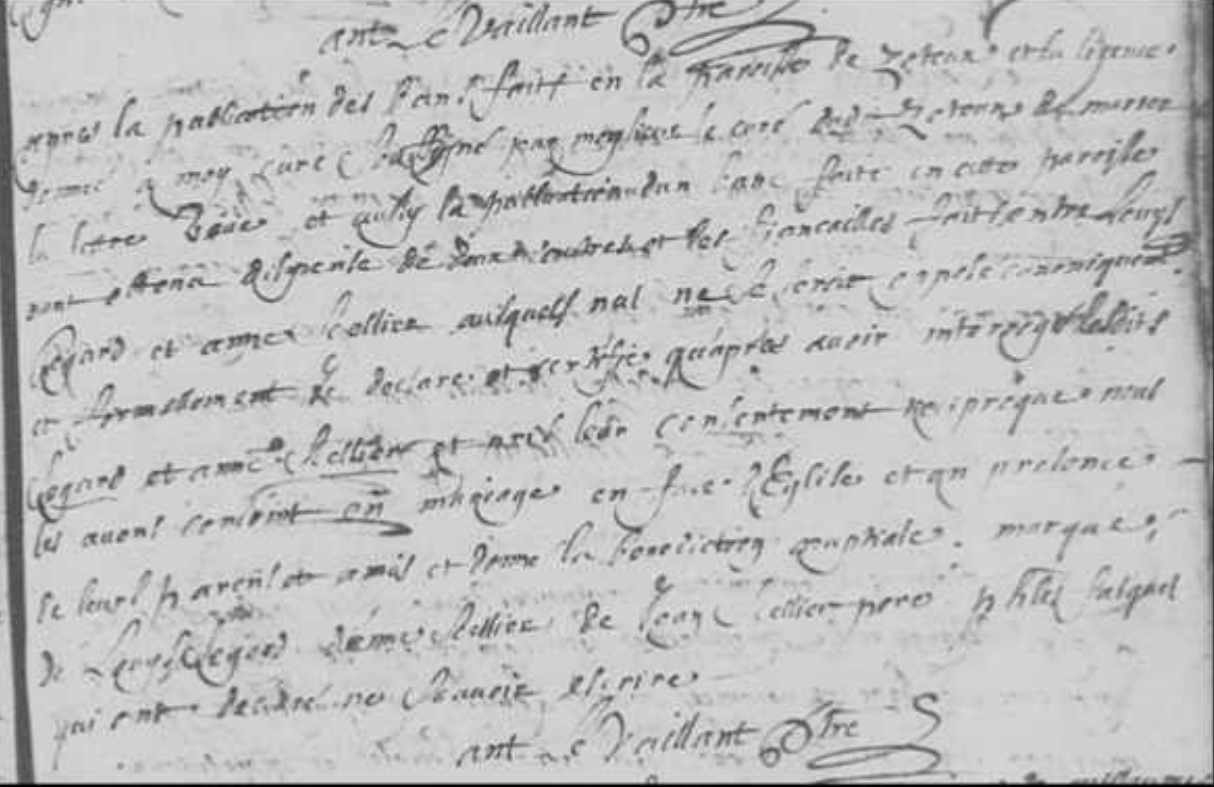 ant Le Vaillant Ptre
apres la publication des bans fait en la paroisse de et la licence
donnee a moy curé soubsigné par monsieur le curé dud de marier
la lettre veüe et aussy la publication dun banc faite en cette paroisse
ont obtenu dispense de deux autres et les fiancailles fait entre Louys
Legard et anne Cellier ausquels nul ne se seroit opposé canoniquement
et formellement Je declare et certifie quapres avoir interrogé lesdits
Legard et anne Cellier et pris leur consentement reciproque nous
les avons conioint en mariage en face de Eglise et en presence
de leurs parens et amis et donné la benediction nuptiale. marque
de Louys Legard anne Cellier de Jean Cellier pere
qui ont declaré ne scavoir escrire
ant Le Vaillant Ptre